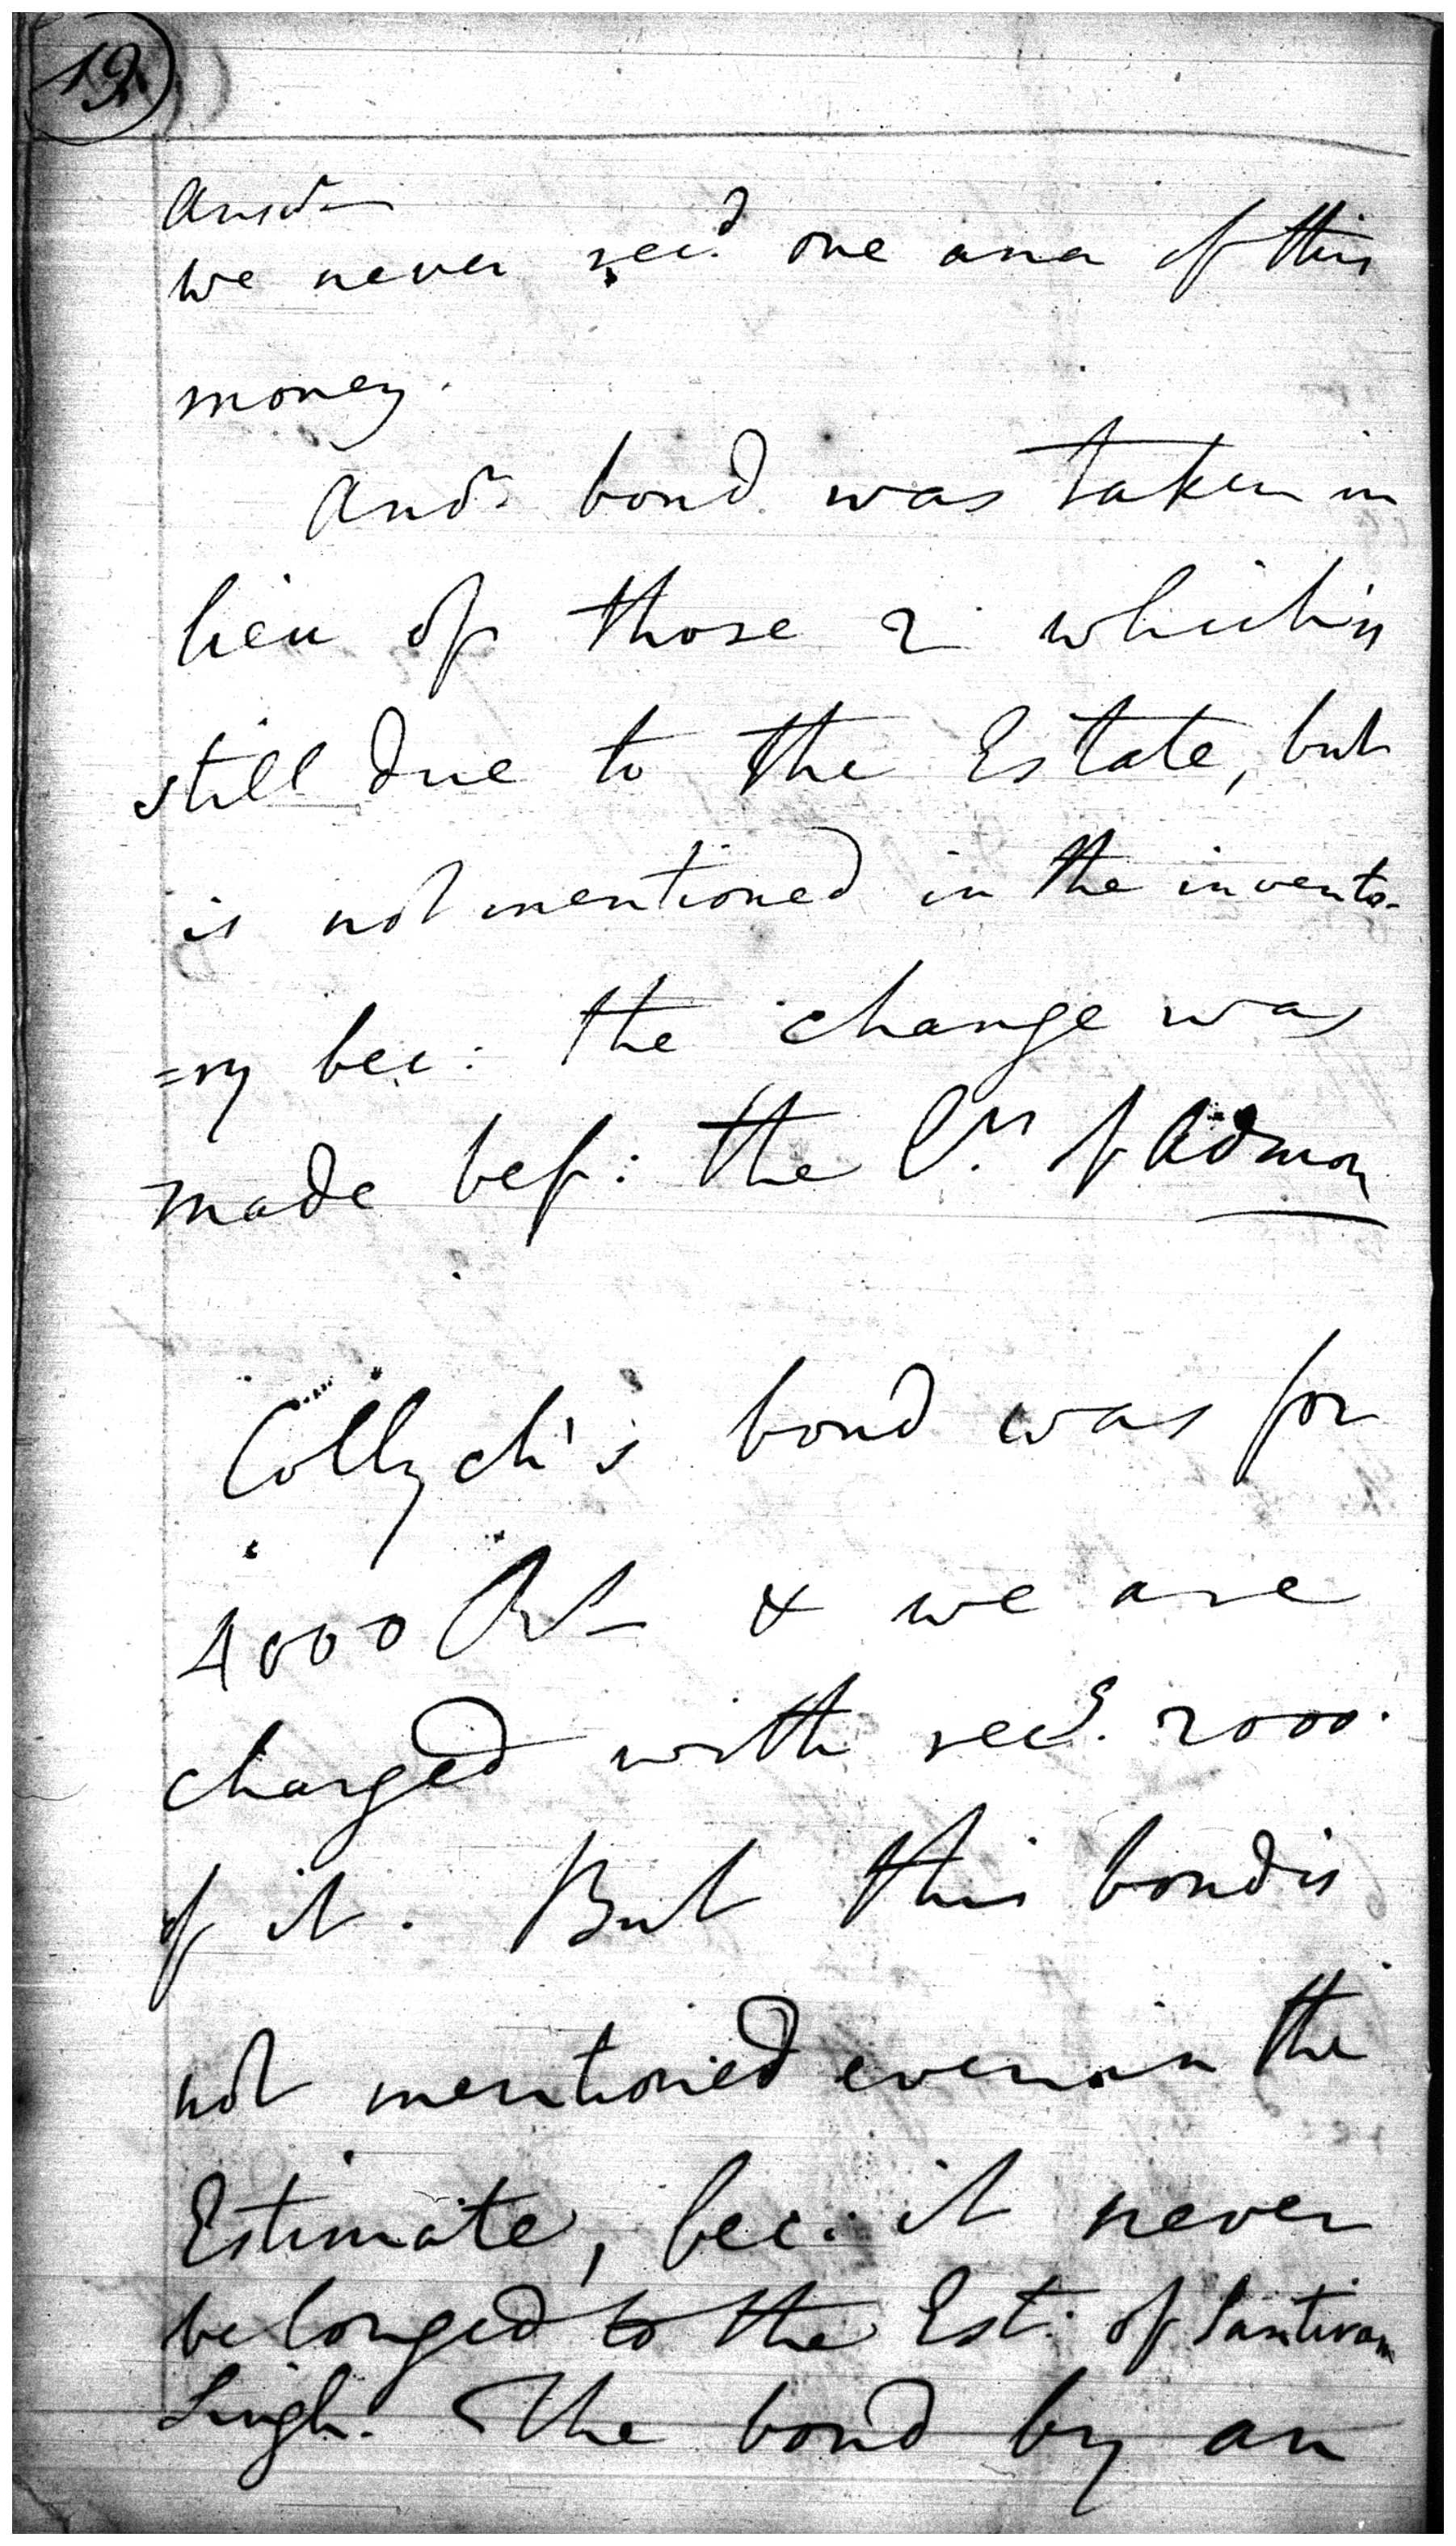 19.
Answr
we never recd. one ana of this
money.
Andr. bond was taken in
lieu of those 2. which is
still due to the Estate, but
is not mentioned in the invento-
=ry bec: the change was
made bef: the Lrs of Admon
Colly ch's bond was for
4000 Rs & we are
charged with recg. 2000.
of it. But this bond is
not mentioned even in the
Estimate, bec: it never
belonged to the Est: of Santiram
Singh. The bond by an